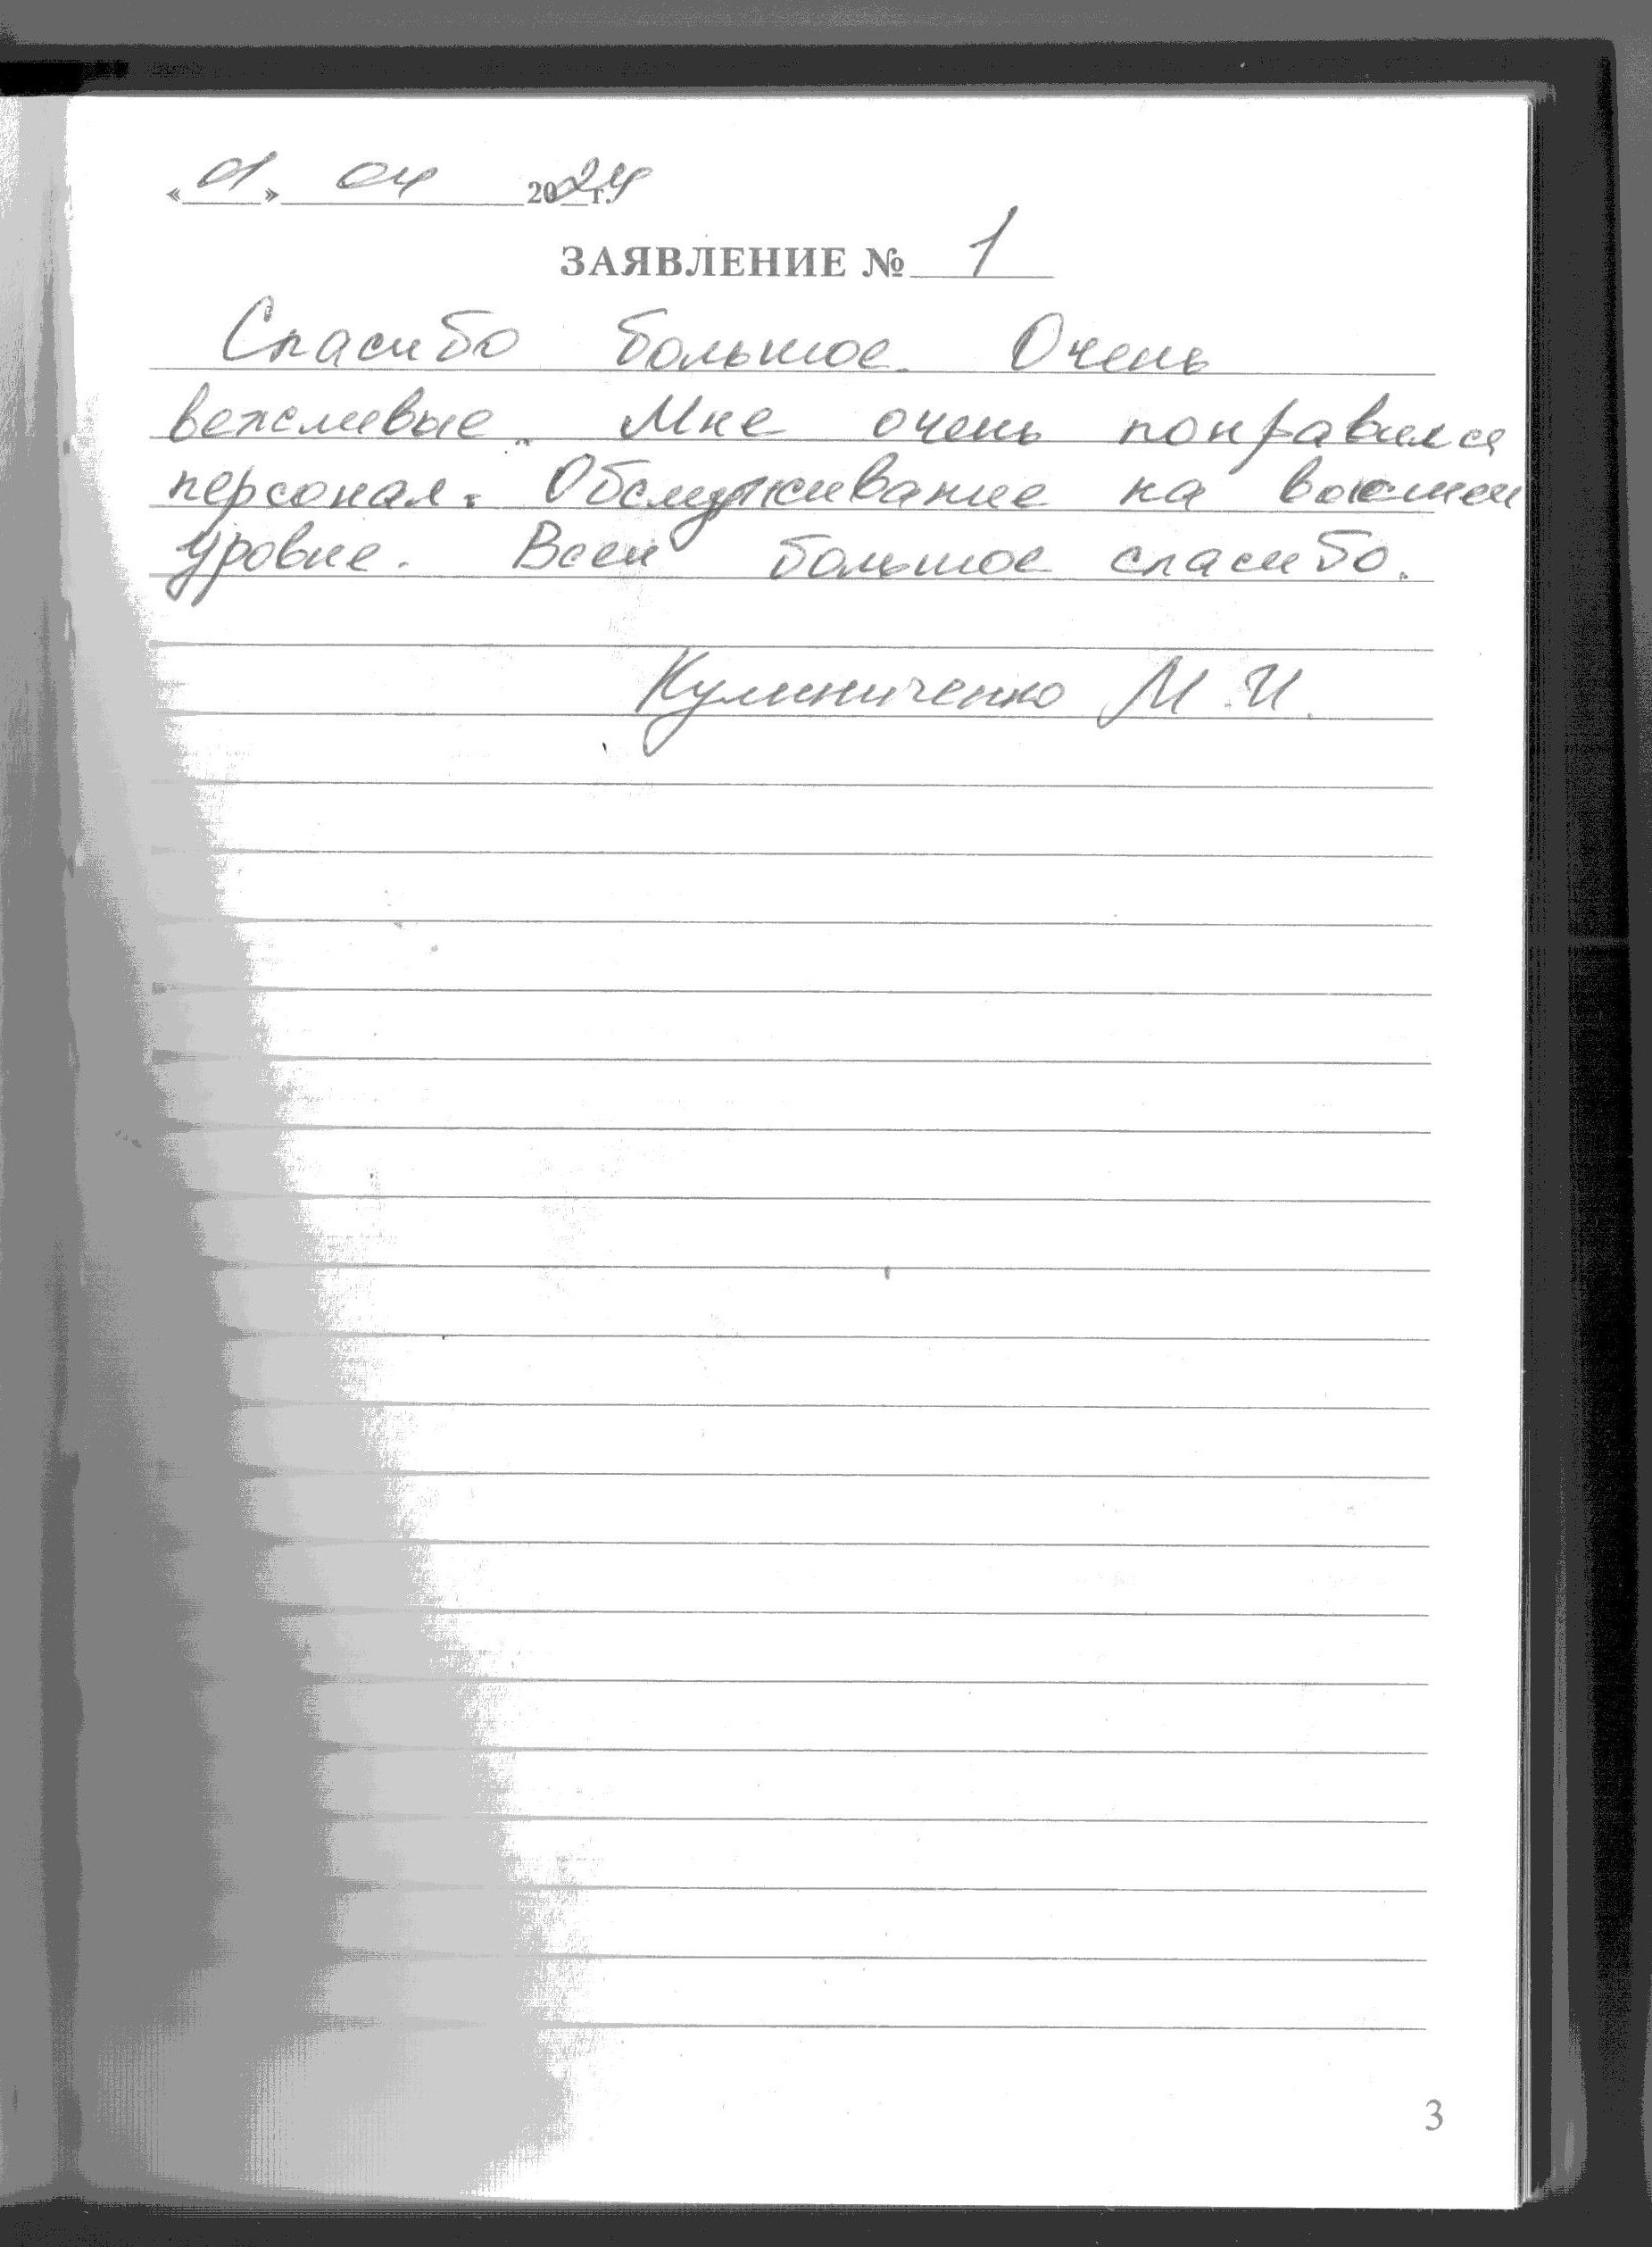 «01» 04 2024 г.
ЗАЯВЛЕНИЕ № 1
Спасибо большое. Очень
вежливые. Мне очень понравился
персонал. Обслуживание на высшем
уровне. Всем большое спасибо.
Кулиниченко М.И.
3